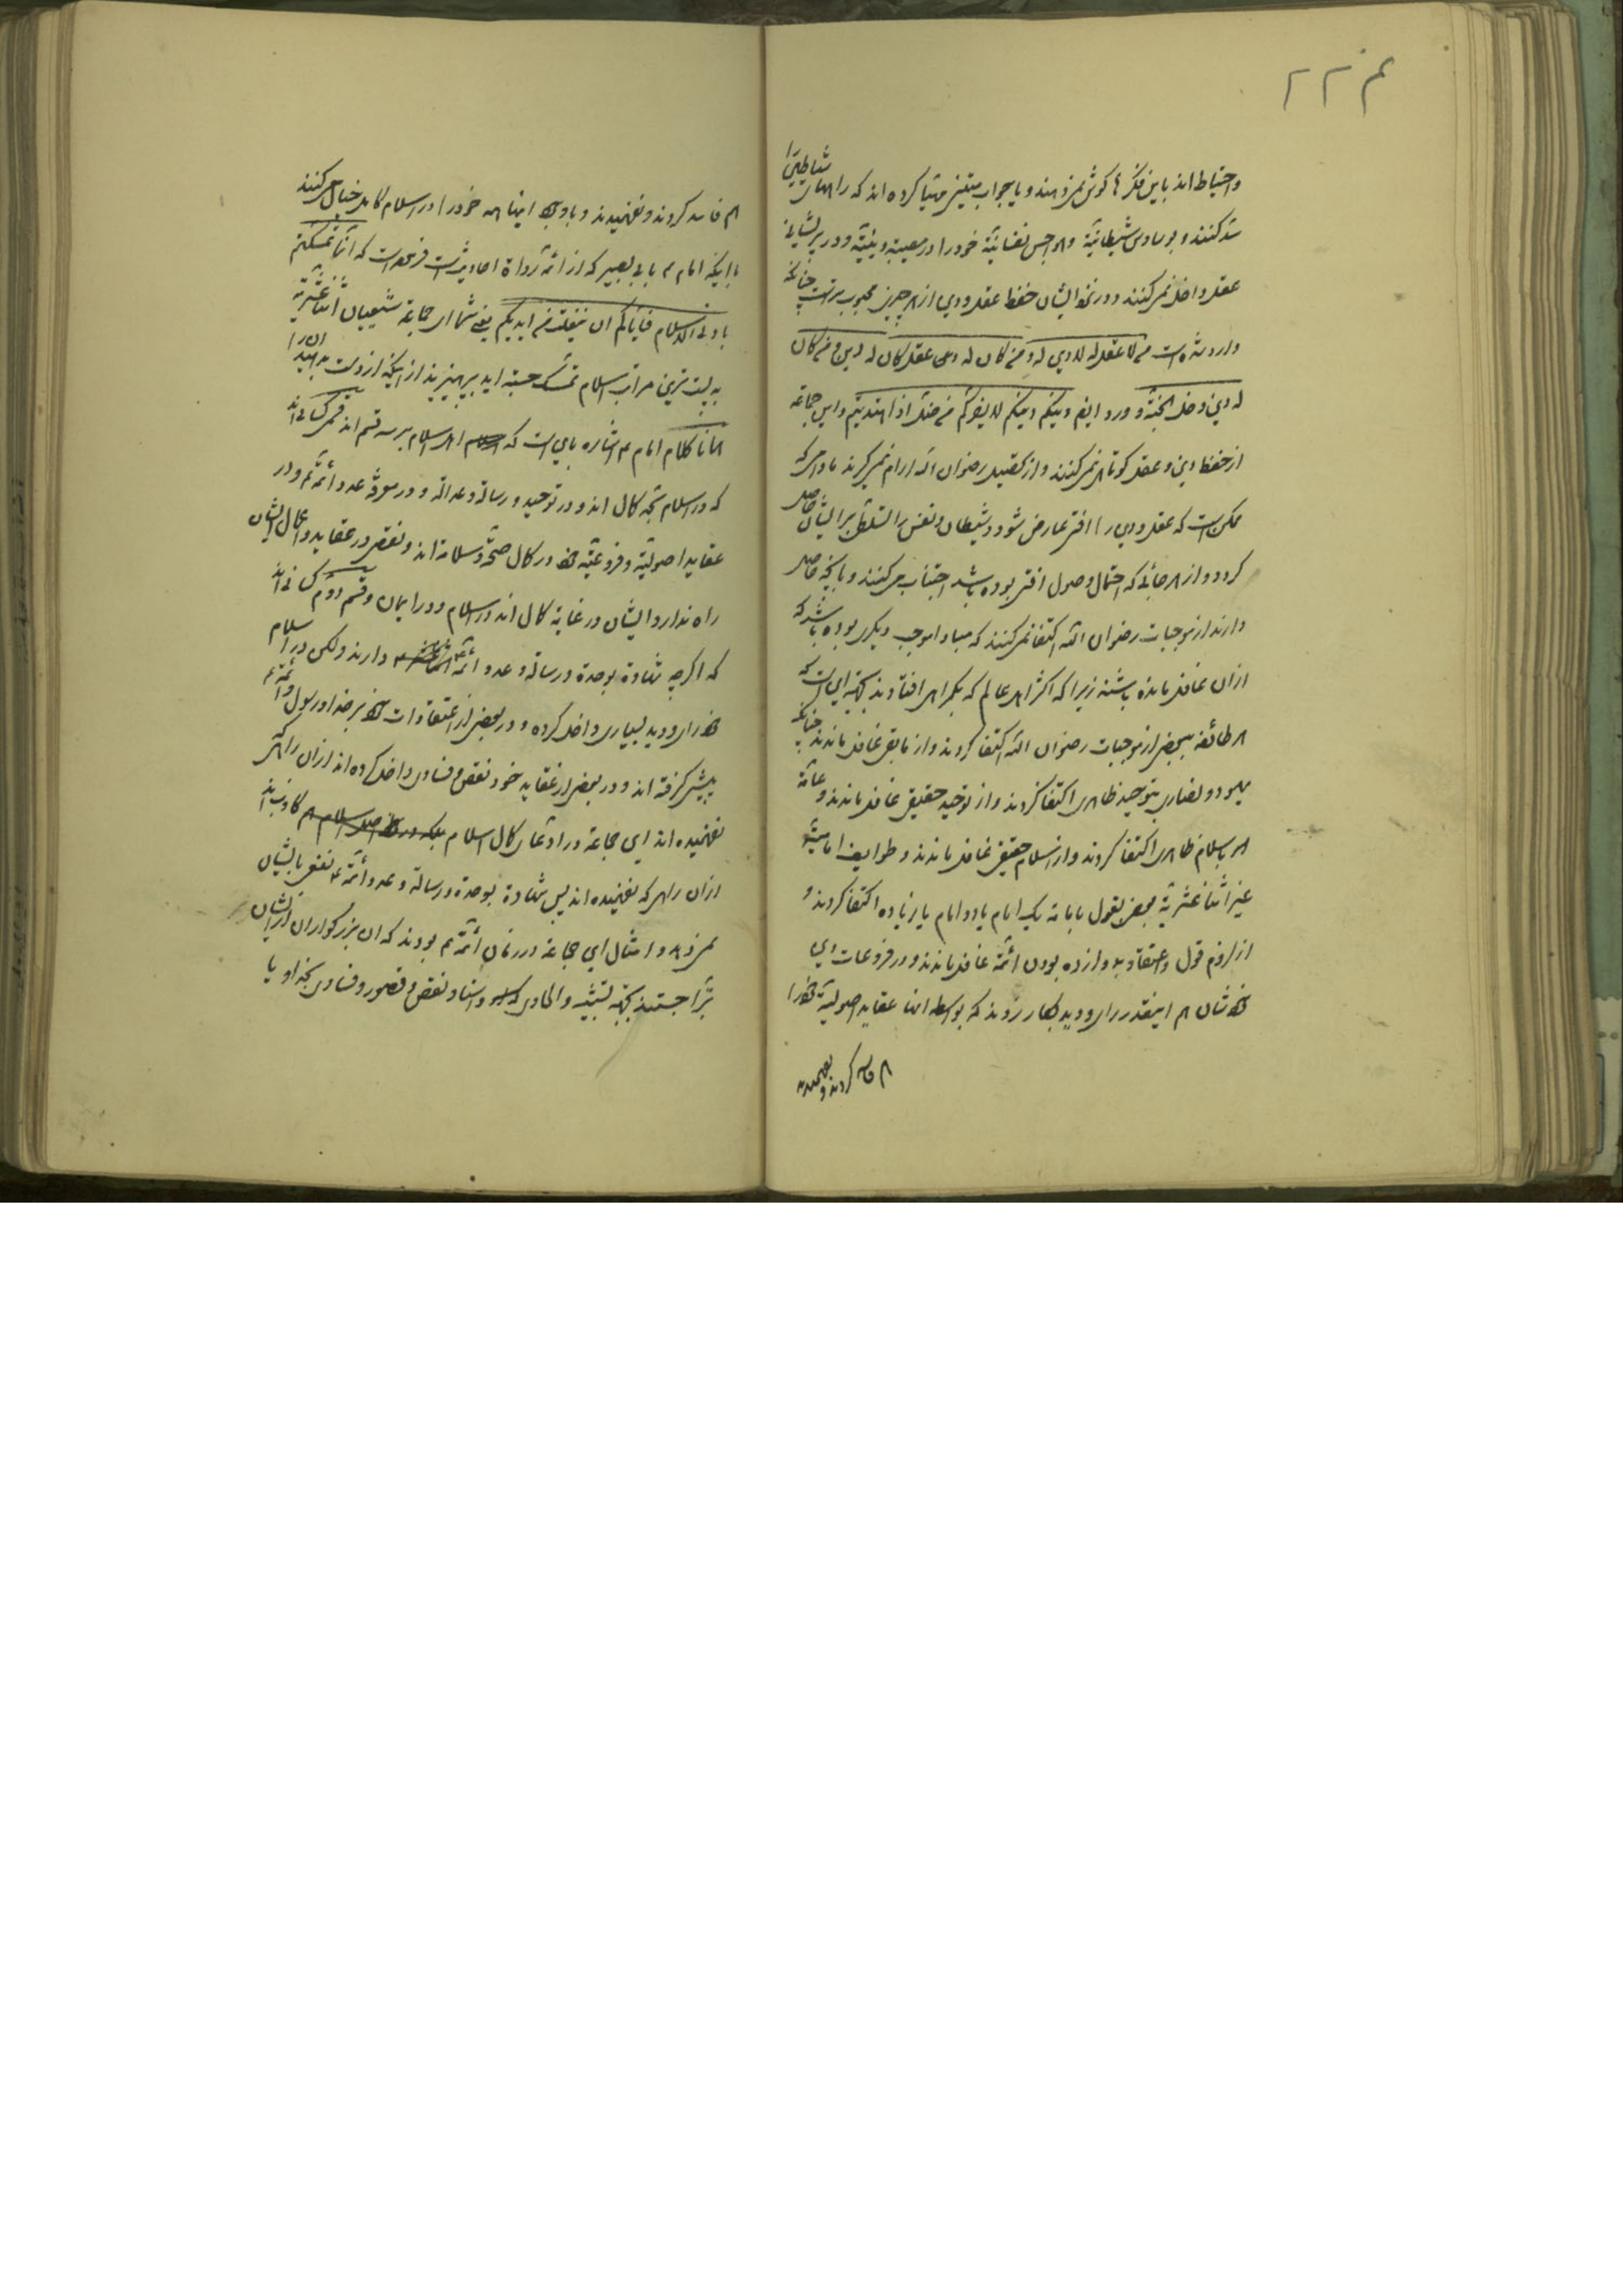 واحتیاط اند باین فکرها گوش نمیدهند و یا جواب متینی مهیا کرده اند که راههای شیاطین را
سد کنند و بوساوس شیطانیّة و هواجس نفسانیّة خود را در مصیبة دینیّة و در پریشانی
عقل داخل نمیکنند و در نزد ایشان حفظ عقل و دین از هر چیز محبوب تر است چنانکه
وارد شده است من لا عقل له لا دین له و من کان له عقل کان له دین و من کان
له دین دخل الجنّة و ورد ایضا دینکم دینکم لا یضرکم من ضلّ اذا اهتدیتم و این جماعة
از حفظ دین و عقل کوتاهی نمیکنند و از تحصیل رضوان الله آرام نمیگیرند مادامی که
ممکن است که عقل و دین را آفتی عارض شود و شیطان و نفس را تسلّط بر ایشان حاصل
گردد و از هر جائی که احتمال وصول آفتی بوده باشد اجتناب میکنند و بآنچه حاصل
دارند از موجبات رضوان الله اکتفا نمیکنند که مبادا موجب دیگری بوده باشد که
از آن غافل مانده باشند زیرا که اکثر اهل عالم که بگمراهی افتادند بجهة این است که
هر طائفه ببعضی از موجبات رضوان الله اکتفا کردند و از مابقی غافل ماندند چنانکه
یهود و نصاری بتوحید ظاهری اکتفا کردند و از توحید حقیقی غافل ماندند و عامّة
هم باسلام ظاهری اکتفا کردند و از اسلام حقیقی غافل ماندند و طوایف امامیّة
غیر اثنا عشریّة ببعضی بقول بامامة یک امام یا دو امام یا زیاده اکتفا کردند و
از لزوم قول و اعتقاد به دوازده بودن ائمّة غافل ماندند و در فروعات دین
خودشان هم اینقدر رای و دید بکار زدند که بواسطه آنها عقاید اصولیّة خود را
هم فاسد کردند و نفهمیدند
هم فاسد کردند و نفهمیدند و با وجود اینها همه خود را در اسلام کامل خیال میکنند
با اینکه امام ع بابی بصیر که از ائمّه رواة احادیث است فرموده است که انّما تمسکتم
بادنی الاسلام فایّاکم ان ینفلت من ایدیکم یعنی شما ای جماعة شیعیان اثنا عشریّه
به پست ترین مراتب اسلام تمسک جسته اید بپرهیزید از اینکه از دست بدهید آن را
همانا کلام امام ع اشاره باین است که اهل اسلام بر سه قسم اند قسمی کسانی اند
که در اسلام بحد کمال اند و در توحید و رسالة و عدالة و در معرفة عدد ائمّة ع و در
عقاید اصولیّة و فروعیّه خود در کمال صحّة و سلامة اند و نقصی در عقاید و اعمال ایشان
راه ندارد و ایشان در غایة کمال اند در اسلام و در ایمان و قسم دوّم کسانی اند
که اگرچه شهادة بوحدة و رسالة و عدد ائمّة دارند ولکن در اسلام
خود رای و دید بسیاری داخل کرده و در بعضی از اعتقادات خود بر خدا و رسول و ائمّه ع
پیشی گرفته اند و در بعضی از عقاید خود نقص و فسادی داخل کرده اند از آن راهی که
نفهمیده اند این جماعة در ادعای کمال اسلام هم کاذب اند
از آن راهی که نفهمیده اند پس شهادة بوحدة و رسالة و عدد ائمّة ع نفعی بایشان
نمیدهد و امثال این جماعة در زمان ائمّة ع بودند که آن بزرگواران از ایشان
تبرّا جستند بجهة تشبیه و الحادی که و اسناد نقص و قصور و فسادی بخدا و یا